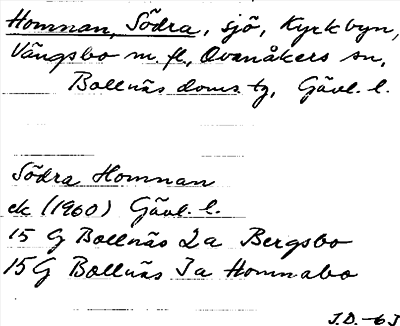 Homnan, Södra, sjö, Kyrkbyn,
Vängsbo m. fl., Ovanåkers sn,
Bollnäs doms. tg, Gävl. l.
Södra Homnan
ek (1960) Gävl. l.
15 G Bollnäs 2a Bergsbo
15 G Bollnäs 3a Homnabo
J.D. -63